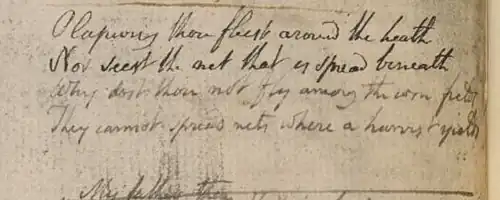 O lapwing thou fliest around the heath
Nor seest the net that is spread beneath
Why dost thou not fly among the corn fields
They cannot spread nets where a harvest yields
My father then